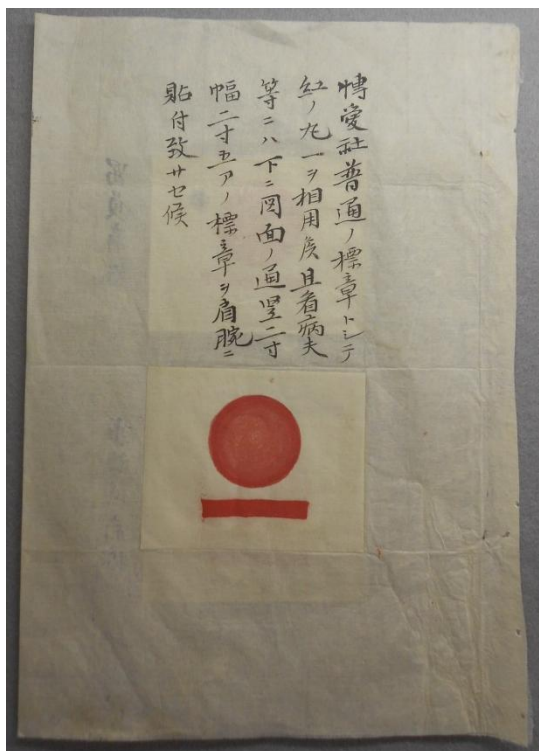 博愛社普通ノ標章トシテ
紅ノ丸一ヲ相用候且看病夫
等ニハ下ニ図面ノ通竪二寸
幅二寸五分ノ標章ヲ肩腕ニ
貼付致サセ候